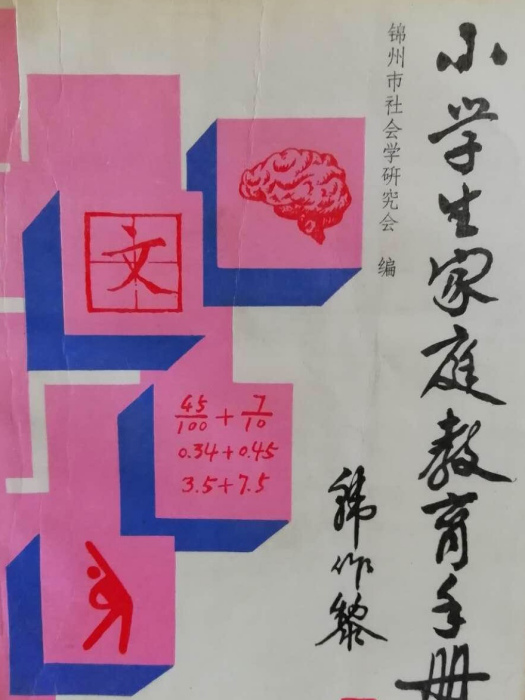 小学生家庭教育手册
锦州市社会学研究会 编
韩作黎
文
45/100 + 7/10
0.34+0.45
3.5+7.5